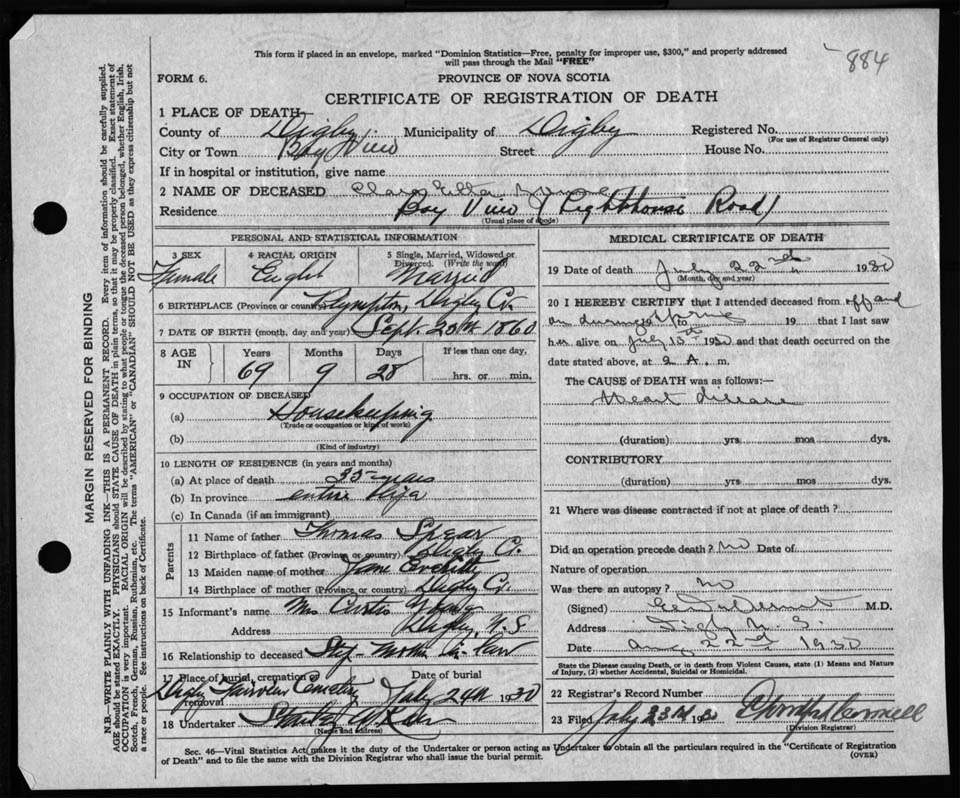 884
This form if placed in an envelope, marked "Dominion Statistics—Free, penalty for improper use, $300," and properly addressed
will pass through the Mail "FREE"
FORM 6. PROVINCE OF NOVA SCOTIA
CERTIFICATE OF REGISTRATION OF DEATH
1 PLACE OF DEATH—
County of Digby Municipality of Digby Registered No.
(For use of Registrar General only)
City or Town Bay View Street House No.
If in hospital or institution, give name
2 NAME OF DECEASED Clara Ella
Residence Bay View (Lighthouse Road)
(Usual place of abode)
PERSONAL AND STATISTICAL INFORMATION
3 SEX 4 RACIAL ORIGIN 5 Single, Married, Widowed or Divorced. (Write the word)
Female English Married
6 BIRTHPLACE (Province or country) Plympton, Digby Co.
7 DATE OF BIRTH (month, day and year) Sept. 20th 1860
8 AGE IN Years Months Days If less than one day,
69 9 28 hrs. or min.
9 OCCUPATION OF DECEASED
(a) Housekeeping
(Trade or occupation or kind of work)
(b)
(Kind of industry)
10 LENGTH OF RESIDENCE (in years and months)
(a) At place of death 35 years
(b) In province entire life
(c) In Canada (if an immigrant)
Parents
11 Name of father Thomas Spear
12 Birthplace of father (Province or country) Digby Co.
13 Maiden name of mother Jane Everitte
14 Birthplace of mother (Province or country) Digby Co.
15 Informant's name Mrs Curtis Young
Address Digby, N.S
16 Relationship to deceased Step Mother in law
17 Place of burial, cremation or removal Date of burial
Digby Fairview Cemetery July 24th 1930
18 Undertaker
(Name and address)
MEDICAL CERTIFICATE OF DEATH
19 Date of death July 22nd 1930
(Month, day and year)
20 I HEREBY CERTIFY that I attended deceased from off and
on during 19 to Spring 19 that I last saw
h er alive on July 15th 1930 and that death occurred on the
date stated above, at 2 A. m.
The CAUSE OF DEATH was as follows:—
Heart disease
(duration) yrs. mos. dys.
CONTRIBUTORY
(duration) yrs. mos. dys.
21 Where was disease contracted if not at place of death?
Did an operation precede death? No Date of
Nature of operation
Was there an autopsy? No
(Signed) M.D.
Address Digby N. S.
Date Aug 22nd 1930
State the Disease causing Death, or in death from Violent Causes, state (1) Means and Nature
of Injury, (2) whether Accidental, Suicidal or Homicidal.
22 Registrar's Record Number
23 Filed July 23rd 1930
(Division Registrar)
Sec. 46—Vital Statistics Act makes it the duty of the Undertaker or person acting as Undertaker to obtain all the particulars required in the "Certificate of Registration
of Death" and to file the same with the Division Registrar who shall issue the burial permit. (OVER)
MARGIN RESERVED FOR BINDING
N.B.—WRITE PLAINLY WITH UNFADING INK—THIS IS A PERMANENT RECORD. Every item of information should be carefully supplied.
AGE should be stated EXACTLY. PHYSICIANS should STATE CAUSE OF DEATH in plain terms, so that it may be properly classified. Exact statement of
OCCUPATION is very important. RACIAL ORIGIN will be described by stating to what people or tongue the deceased person belonged, whether English, Irish,
Scotch, French, German, Russian, Ruthenian, etc. The terms "AMERICAN" or "CANADIAN" SHOULD NOT BE USED as they express citizenship but not
a race or people. See instructions on back of Certificate.